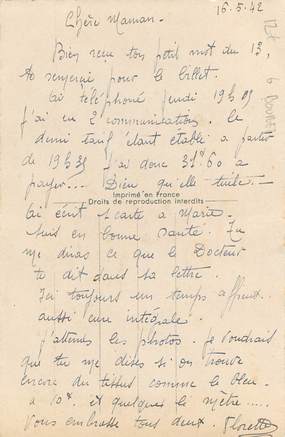 15.5.42
Chère Maman.
Bien reçu ton petit mot du 13,
te renverrai pour le billet.
Ai téléphoné Jeudi 19h35
j'ai eu 2 communications. Le
demi tarif étant établi à partir
de 19h35 j'ai donc 31F60 à
payer... Bien qu'elle
Imprimé en France
Droits de reproduction interdits
Ai écrit 1 carte à Marie
suis en bonne santé. Tu
me diras ce que le Docteur
te dit dans sa lettre.
Ici toujours un temps affreux
aussi cure intégrale.
J'attends les photos. Je voudrais
que tu me dises si on trouve
encore du tissus comme le bleu
à 10F. et quelques le mètre....
Vous embrasse tous deux. Florette